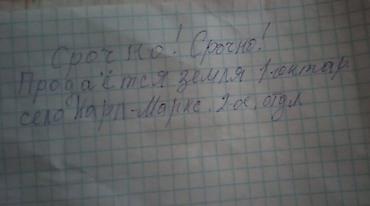 Срочно! Срочно!
Продаётся земля 1-октар
село Карл-Маркс. 2-ое, отдл